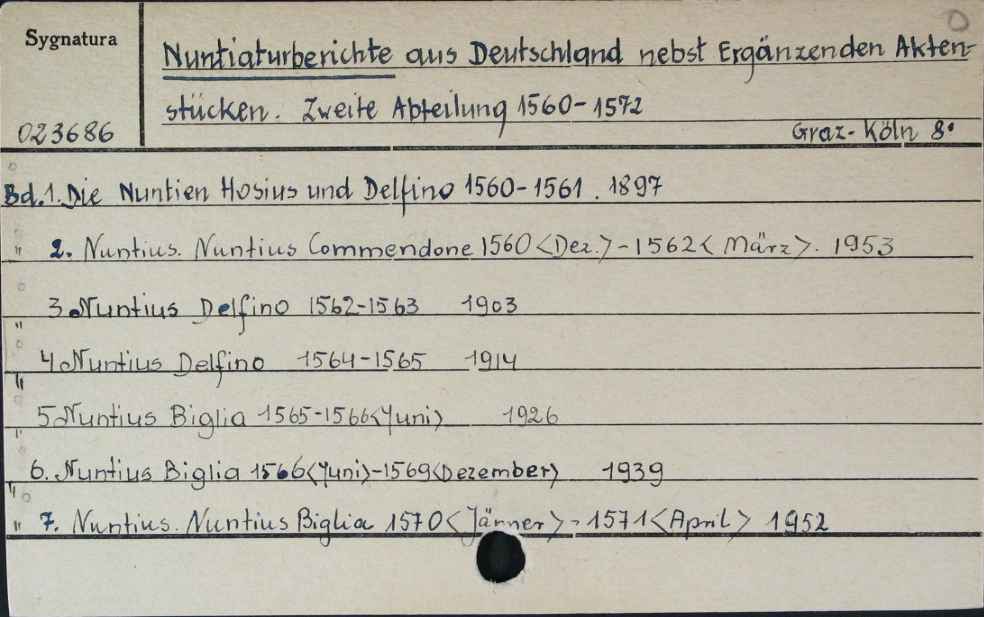 Sygnatura
Nuntiaturberichte aus Deutschland nebst Ergänzenden Akten-
stücken. Zweite Abteilung 1560-1572
023686
Graz-Köln 8°
Bd.1. Die Nuntien Hosius und Delfino 1560-1561. 1897
" 2. Nuntius. Nuntius Commendone 1560<Dez.>-1562<März>. 1953
" 3 Nuntius Delfino 1562-1563 1903
" 4 Nuntius Delfino 1564-1565 1914
" 5 Nuntius Biglia 1565-1566<Yuni> 1926
" 6. Nuntius Biglia 1566<Yuni>-1569<Dezember> 1939
" 7. Nuntius. Nuntius Biglia 1570<Jänner>-1571<April> 1952